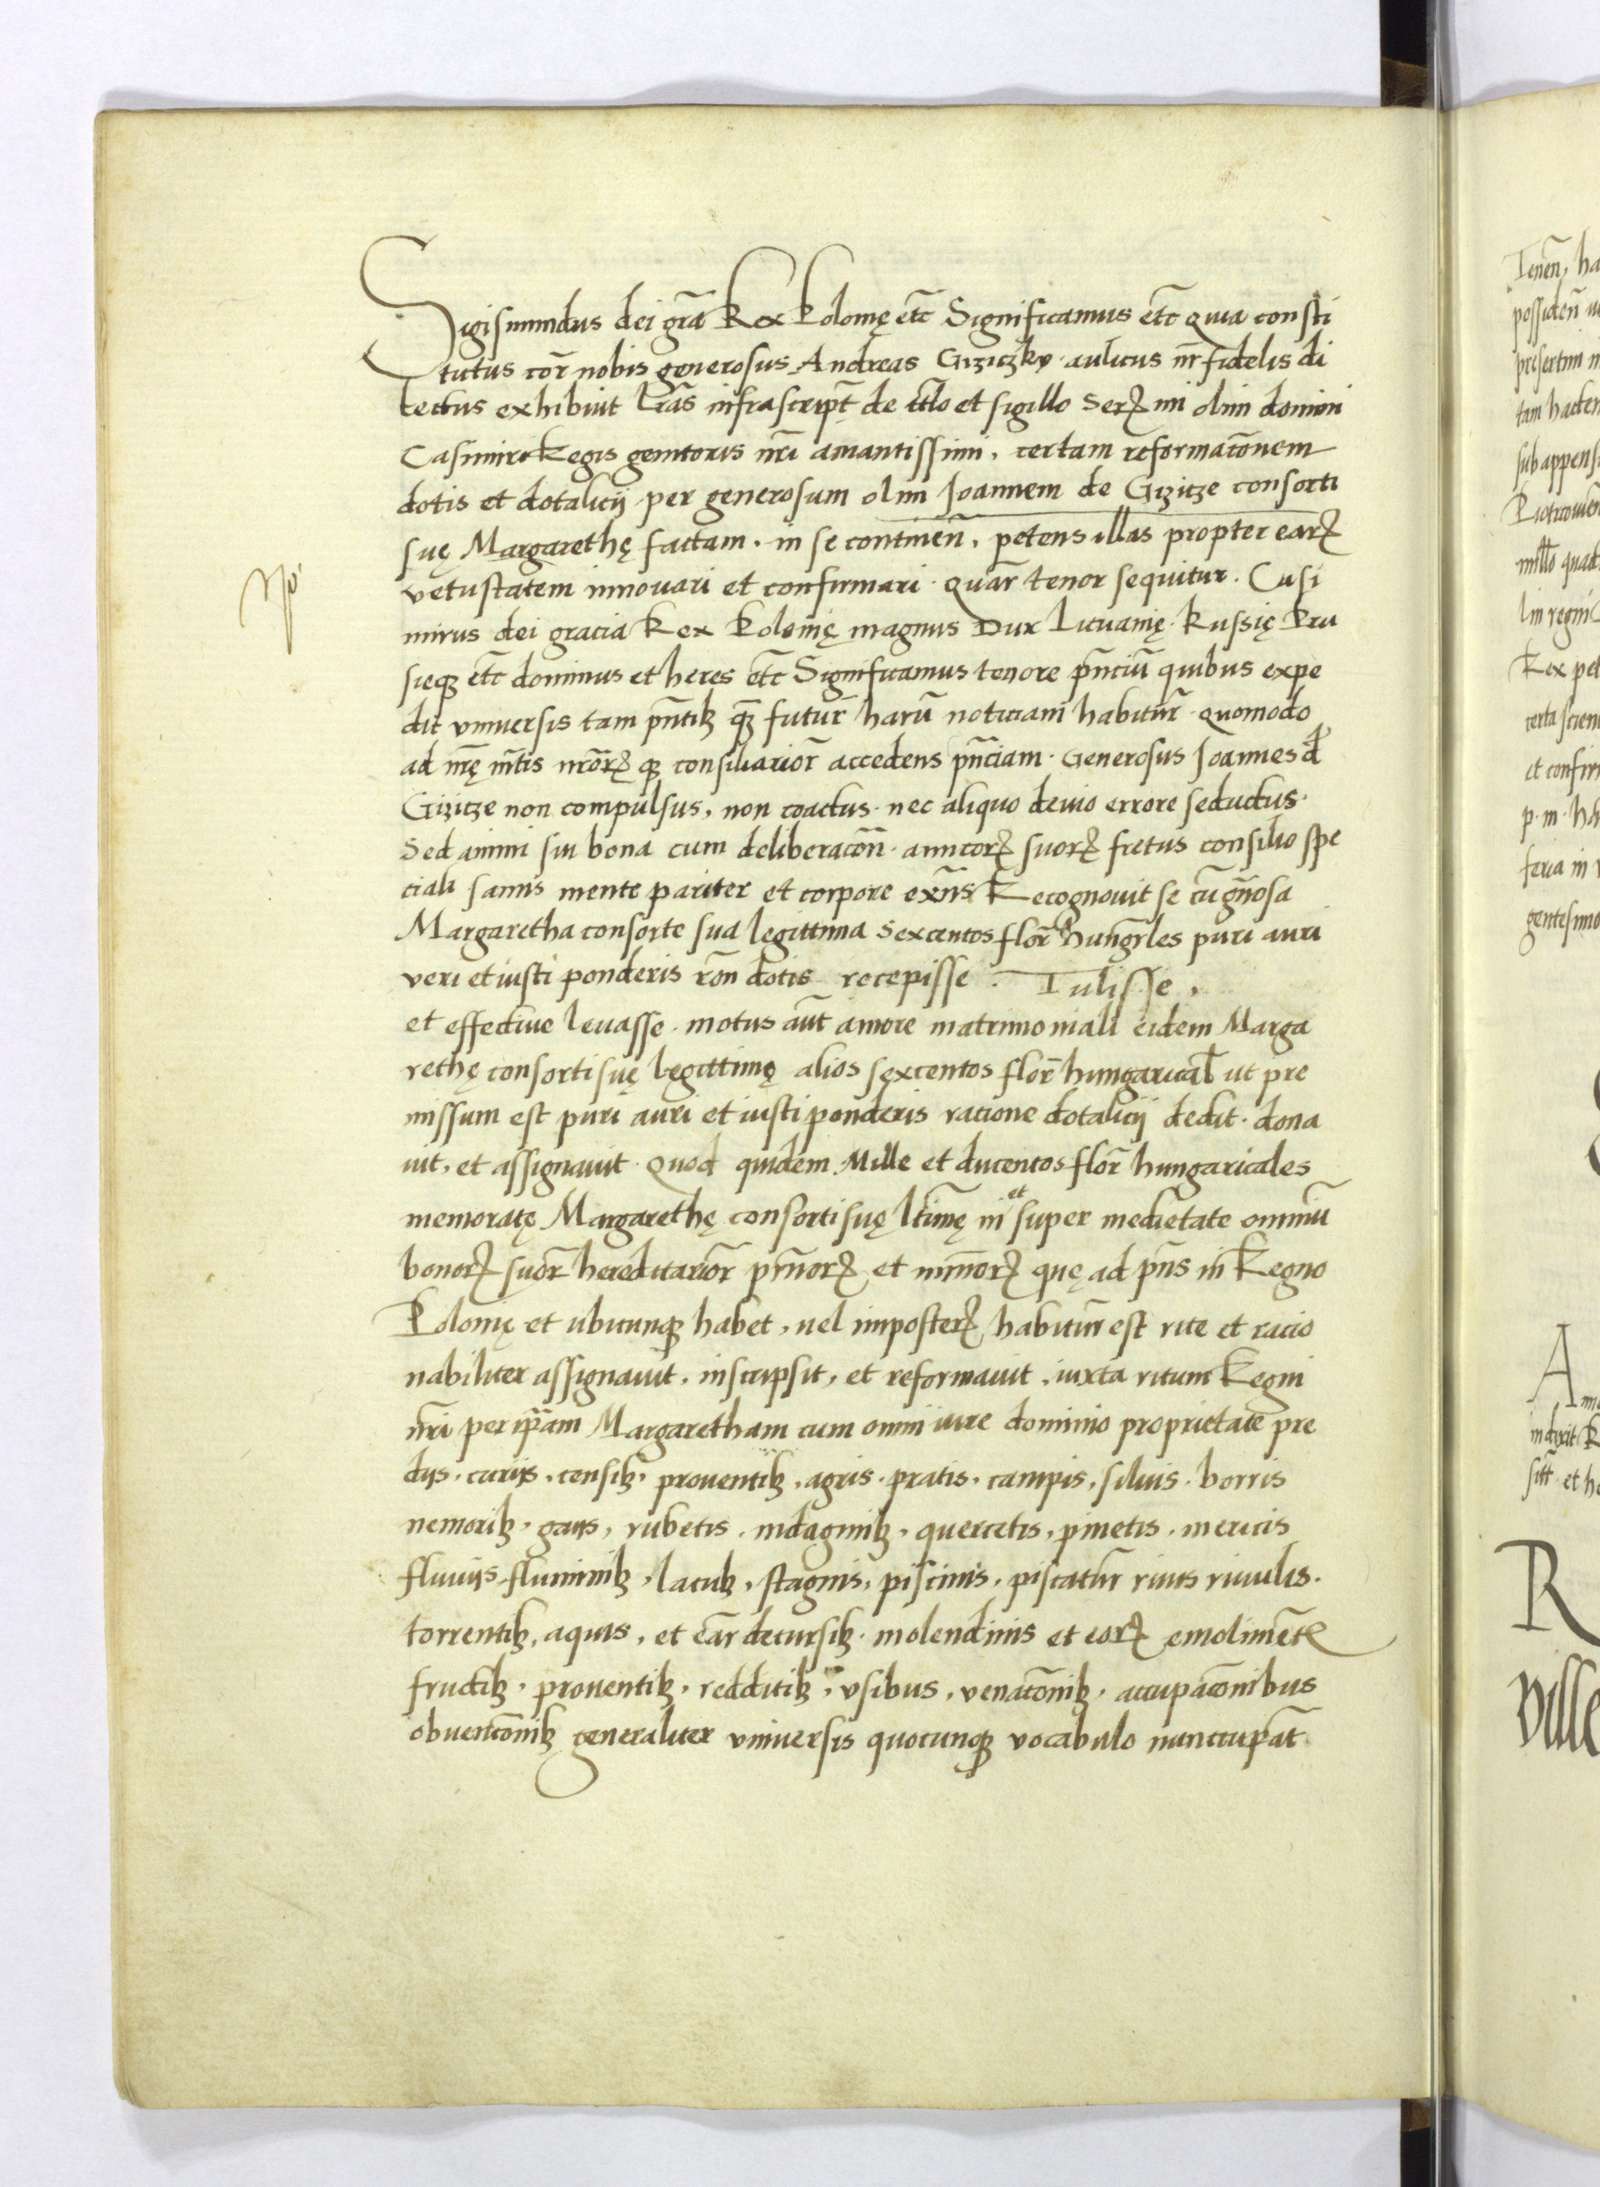 Sigismundus dei gra̅ Rex Polonię etc̅ Significamus etc̅ Quia consti
tutus cor̅ nobis generosus Andreas Gizitzky aulicus nr̅ fidelis di
lectus exhibuit lr̅as infrascript̅ de et sigillo Serꝝmi olim domini
Casimiri Regis genitoris nr̅i amantissimi, certam reformaco̅nem
dotis et dotalicij per generosum olim Joannem de Gizitze consorti
suę Margarethę factam. in se continen̅, petens illas propter earꝝ
vetustatem innovari et confirmari. quar̅ tenor sequitur. Casi
mirus dei gracia Rex Polonię magnus Dux Lituanię. Russię Pru
sieqꝫ etc̅ dominus et heres etc̅ Significamus tenore pn̅ciu̅ quibus expe
dit vniuersis tam pn̅tibꝫ qꝫ futur̅ haru̅ noticiam habitur̅. quomodo
ad nr̅ę mt̅is nr̅orꝝ qꝫ consiliarior̅ accedens pn̅ciam. Generosus Joannes d̅
Gizitze non compulsus, non coactus. nec aliquo deuio errore seductus.
Sed animi sui bona cum deliberaco̅n̅. amicorꝝ suorꝝ fretus consilio spe
ciali sanus mente pariter et corpore exn̅s Recognouit se cu̅ gn̅osa
Margaretha consorte sua legittima sexcentos flor̅ hungr̅les puri auri
veri et iusti ponderis ro̅n dotis recepisse. Tulisse,
et effectiue leuasse. motus aut̅ amore matrimoniali eidem Marga
rethę consorti suę legittimę alios sexcentos flor̅ hungarical̅ ut pre
missum est puri auri et iusti ponderis racione dotalicij dedit. dona
uit, et assignauit. Quod quidem Mille et ducentos flor̅ hungaricales
memoratę Margarethę consorti suę lt̅imę in et super medietate omniu̅
bonorꝝ suor̅ hereditarior̅ pr̅niorꝝ et mr̅niorꝝ quę ad pn̅s in Regno
Polonię et ubicunqꝫ habet, uel imposterꝝ habitur̅ est rite et racio
nabiliter assignauit, inscripsit, et reformauit, iuxta ritum Regni
nr̅i per ip̅am Margaretham cum omni iure dominio proprietate pre
dijs. curijs. censibꝫ. prouentibꝫ. agris. pratis. campis. siluis. borris
nemoribꝫ. gays, rubetis. indaginibꝫ. quercetis. pinetis. mericis
fluuijs fluminibꝫ. lacubꝫ. stagnis. piscinis. piscatur̅ riuis riuulis.
torrentibꝫ, aquis, et ear̅ decursibꝫ. molendinis et eorꝝ emolimen̅t
fructibꝫ. prouentibꝫ. redditibꝫ. vsibus, venaco̅nibꝫ. aucupaco̅nibus
obuenco̅nibꝫ generaliter vniuersis quocunqꝫ vocabulo nunccupat̅